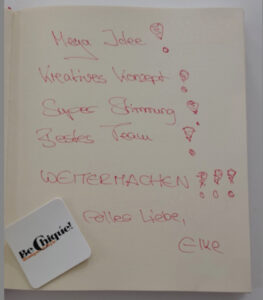 Mega Idee !
Kreatives Konzept !
Super Stimmung !
Bestes Team !
WEITERMACHEN !!!
Alles Liebe,
Elke
Be Chique!